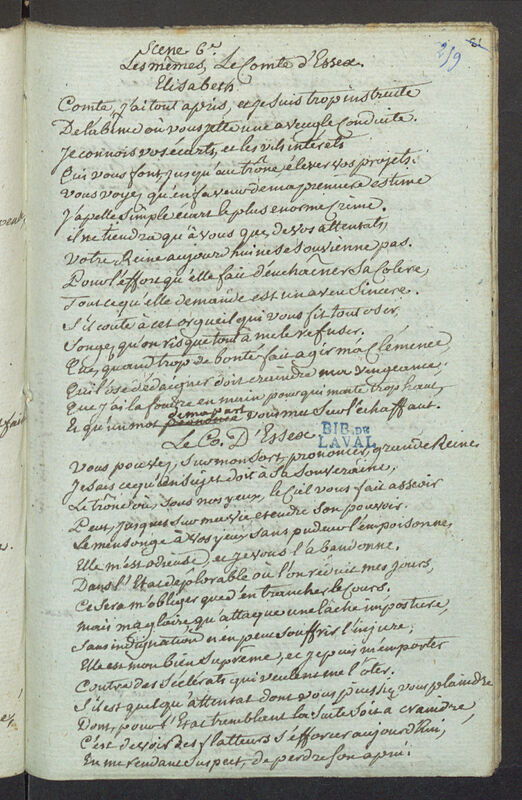 Scene 6e
Les mêmes, Le Comte d'Essex.
219
Elisabeth
Comte, j'ai tout apris, et je suis trop instruite
De l'abîme où vous jette une aveugle Conduite.
Je connois vos écarts, et les vils intérêts
Qui vous font, jusqu'au trône élever vos projets.
Vous voyez, qu'en faveur de ma première estime
J'apelle simple écart le plus enorme Crime.
il ne tiendra qu'à vous que de vos attentats,
Votre Reine aujourd'hui ne se souvienne pas.
Pour l'effort qu'elle fait d'enchaîner sa Colere,
Tout ce qu'elle demande est un aveu Sincere.
S'il coute à cet orgueil qui vous fit tout oser,
Songez, qu'on risque tout à me le refuser.
Que, quand trop de bonté fait agir ma Clémence,
Qui l'ose dédaigner doit craindre ma vengeance;
Que j'ai la foudre en main pour qui monte trop haut,
Et qu'un mot de ma part vous met Sur l'échaffaut.
Le Co. D'Essex
BIB. DE
LAVAL
Vous pouvez, Sur mon Sort, prononcer, grande Reine
Je sais ce qu'un Sujet doit à Sa Souveraine,
Le trône où, sous nos yeux, le Ciel vous fait asseoir
Peut, jusques sur ma vie etendre Son pouvoir.
Le mensonge à vos yeux sans pudeur l'empoisonne,
Elle m'est odieuse, et je vous l'abandonne.
Dans l'Etat déplorable où l'on réduit mes jours,
Ce Sera m'obliger que d'en trancher le Cours.
mais ma gloire, qu'attaque une lâche imposture,
Sans indignation n'en peut Souffrir l'injure;
Elle est mon bien Suprême, et je puis m'emporter
Contre des Scelerats qui veulent me l'ôter.
S'il est quelqu'attentat dont vous puissiez vous plaindre
Dont, pour l'Etat tremblant la Suite Soit a craindre
C'est de voir des flatteurs s'efforcer aujourd'hui,
En me rendant Suspect, de perdre Son apui.